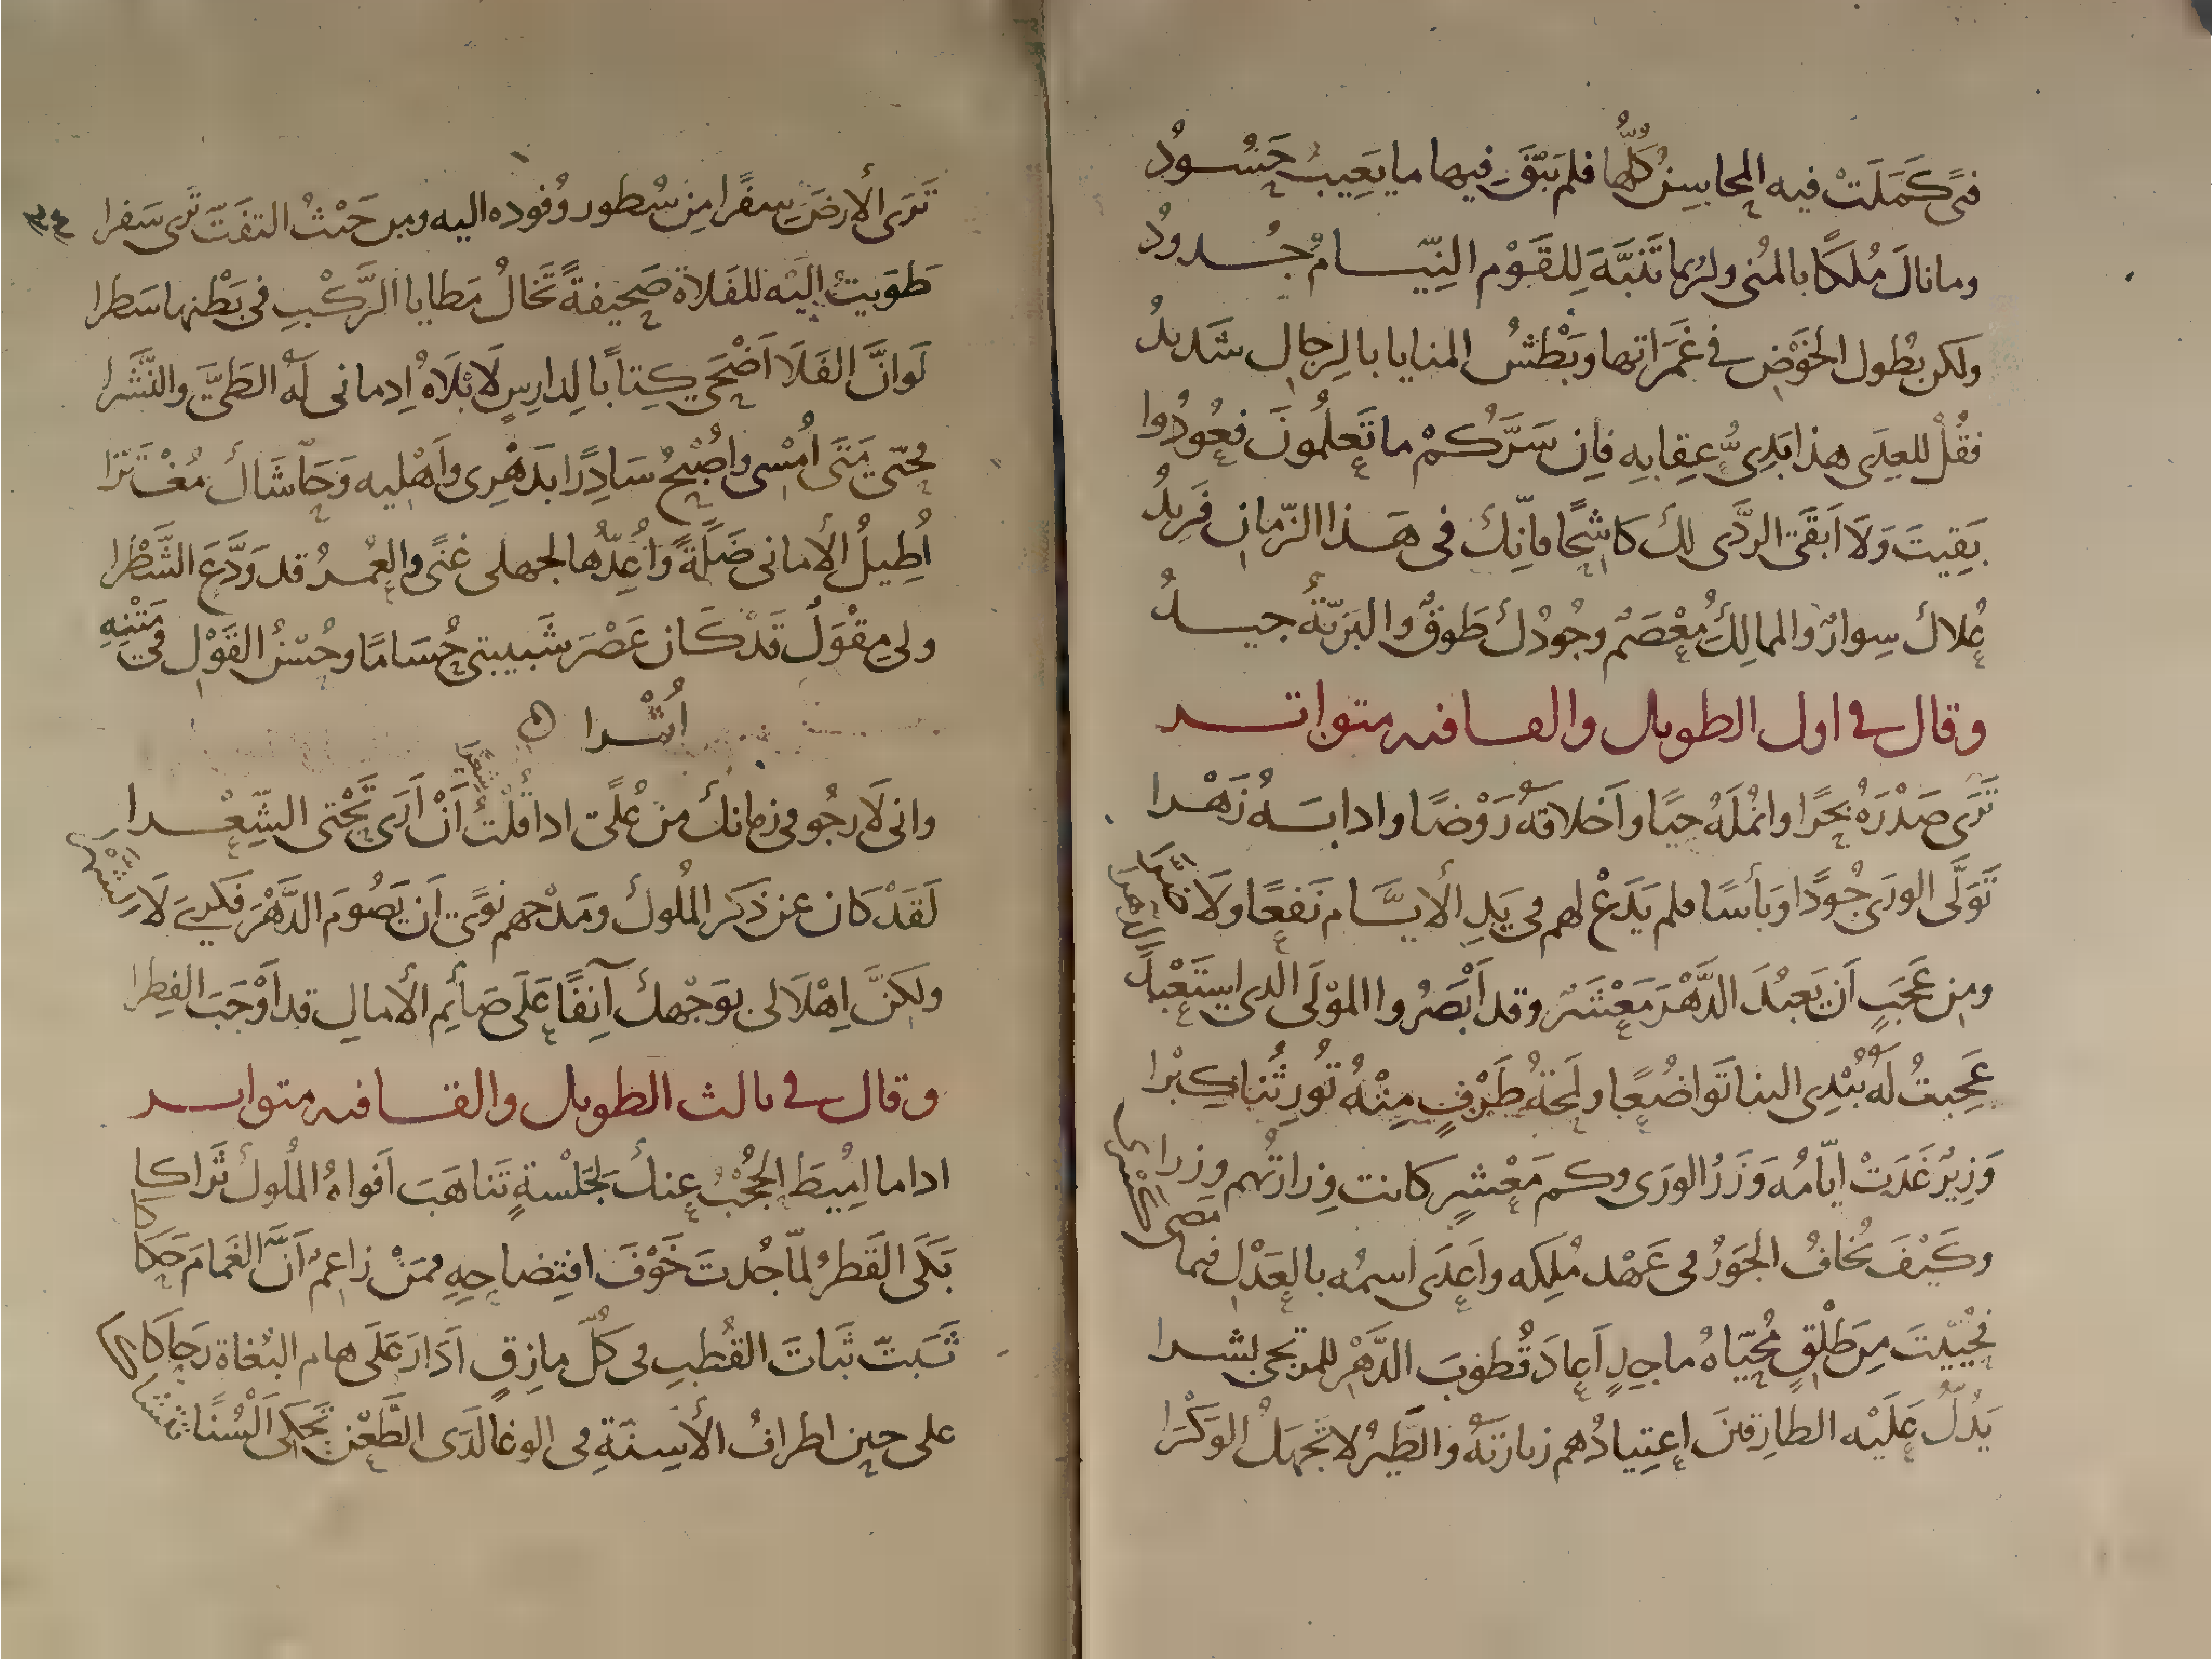 فتًى كَمَلَتْ فيه المحاسِنُ كُلُّها فلم يَبْقَ فيها ما يَعِيبُ حَسُودُ
وما نالَ مُلكًا بالمُنى ولرُبما تَنَبَّهَ لِلقَوْمِ النِيّامِ جُدودُ
ولكن بطُول الخَوْضِ في غَمَراتها وبَطْشُ المنايا بالرِجالِ شَديدُ
فقُلْ للعِدَى هذا بَدِىُّ عِقابِهِ فإن سَرَّكُمْ ما تَعلَمُونَ فعُودُوا
بَقِيتَ وَلَا اَبقَى الرَّدَى لكَ كَاشِحًا فانّكَ فى هَذا الزّمانِ فَرِيدُ
عُلاكَ سِوارٌ والممالِكُ مُعْصَمٌ وجُودُكَ طَوقٌ والبَرِيّةُ جيدُ
وقال في اول الطويل والقافيه متواتر
تَرَى صَدْرَهُ بَحرًا وانمُلَهُ حيًا واَخلاقَهُ رَوْضًا وادابَهُ زَهْرا
تَوَلَّى الورَى جُودًا وَبأسًا فلم يَدَعْ لهم في يَدِ الأيَّام نَفعًا ولَا ضَرّا
ومِن عَجَبٍ اَن يَعبُدَ الدَّهْرَ مَعْشَرٌ وقد اَبْصَرُوا المَوْلَى الذي اسْتَعْبَدَ الدهرا
عَجِبتُ لَهُ يُبْدِى الينا تَواضُعًا ولَمحَةُ طَرْفٍ مِنْهُ تُورِثُنا كِبْرا
وَزِيرٌ غَدَتْ ايّامُه وَزَرُ الورَى وكم مَعْشرٍ كانت وِزارَتُهم وِزرا
وكَيْفَ نُخافُ الجَورُ فى عَهْد مُلكِه واَعدَى اسمُه بالعَدْلِ فيما مضى كسرى
فحُيّيتَ مِن طَلْقٍ مُحَيّاهُ ماجِدٍ اَعادَ قُطوبَ الدَّهْرِ للمرتجى بشرا
يَدُلُّ عَلَيْه الطارِقينَ اِعتِيادُهم زيارَتَهُ والطَيرُ لا تَجهَلُ الوَكْرَا
٣٤
تَرَى الأرضَ سِفرًا مِن سُطور وُفوده اليه ومِن حَيْثُ التفَتّ تَرى سَفرا
طَوَيتُ اِلَيْه للفَلاة صَحِيفةً تَخالُ مَطايا الرَّكْبِ في بَطْنها سَطرا
لَوانَّ الفَلَا اَضْحَى كِتابًا لِدارِسٍ لَابْلَاهُ اِدمانى لَهُ الطَىَّ والنَّشْرا
مَحتّى مَتَى اُمْسِى واُصْبِحُ سَادِرًا بدَهْرِى واَهْلِيه وَحَاشَاكَ مُغْتَرّا
اُطِيلُ الأمانى ضَلَّةً وَاُعِدُّها لجهلى غنًى والعُمرُ قد وَدَّعَ الشَّطْرا
ولى مِقْوَلٌ قَدْ كَان عَصْرَ شَبيبتى حُسَامًا وحُسْنُ القَوْل في مَتْنِهِ
اُثْرا
وانى لَارجُو فى زمانكَ مِن عُلًى اذا قُلْتُ شِعْرًا اَنْ اَرَى تَحْتِى الشِّعْرا
لَقَدْ كان عن ذكرِ المُلوك ومَدْحهم نوًى اَن يَصُومَ الدَّهْرَ فكرى لَا شهرا
ولكنَّ اِهْلَالى بوَجْهك آنِفًا عَلَى صَائِم الأمالِ قد اَوْجَبَ الفِطرا
وقال في ثالث الطويل والقافيه متواتر
اذا ما اُمِيطَ الحُجْبُ عنكَ لجَلْسةٍ تَناهَبَ اَفواهُ المُلوكِ ثَراكا
بَكَى القَطرُ لمّا جُدتَ خَوْفَ افتِضاحِهِ فمَنْ زاعمٌ اَنَّ الغَمامَ حَكَاكا
ثَبَتّ ثَباتَ القُطبِ فى كُلّ مازِقٍ اَدَارَ عَلَى هام البُغاة رَحَاكا
على حين اطرافُ الأسِنّةِ فى الوغا لَدَى الطَّعْنِ تَحكى اَلْسُنًا